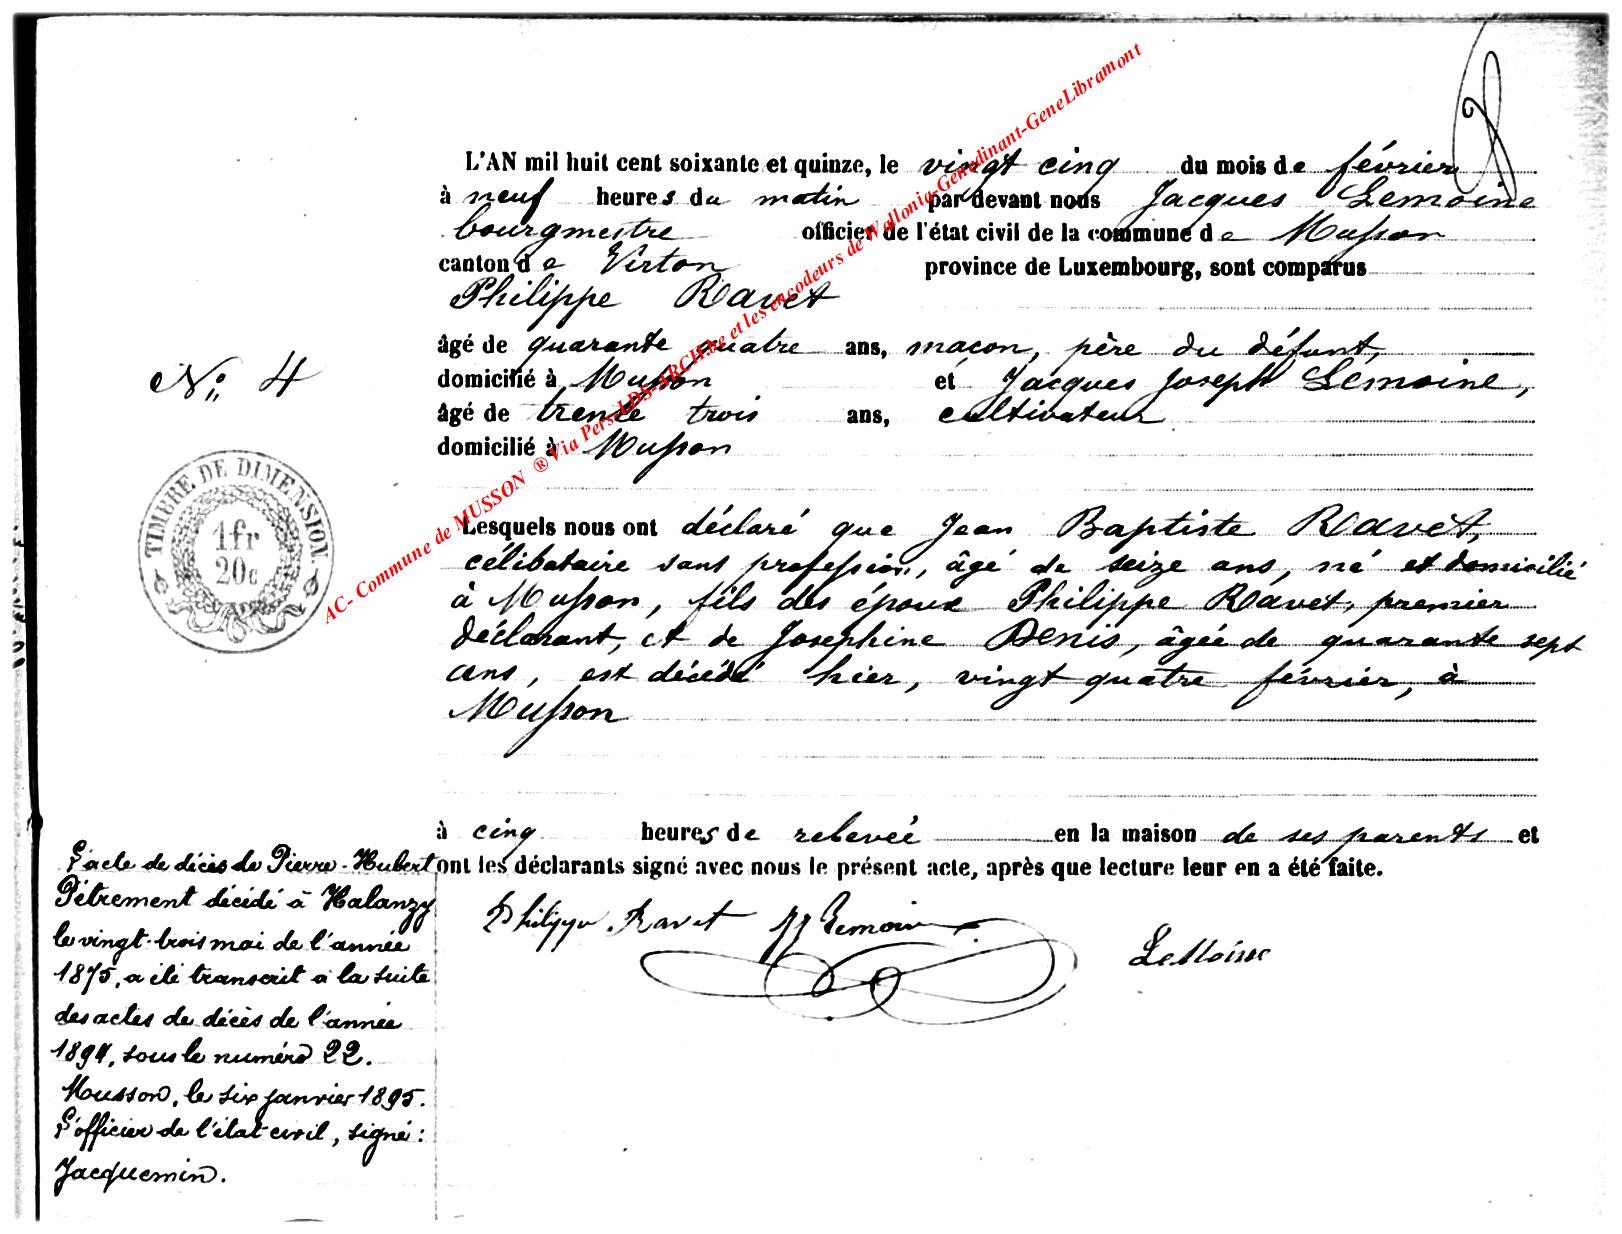 L'AN mil huit cent soixante et quinze, le vingt cinq du mois de février
à neuf heures du matin par devant nous Jacques Lemoine
bourgmestre officier de l'état civil de la commune de Musson
canton de Virton province de Luxembourg, sont comparus
Philippe Ravet
âgé de quarante quatre ans, macon, père du défunt,
domicilié à Musson et Jacques Joseph Lemoine,
âgé de trente trois ans, cultivateur
domicilié à Musson
N° 4
TIMBRE DE DIMENSION.
1 fr
20c
AC- Commune de MUSSON ® Via Pers-LDS-ARCH.be et les encodeurs de Wallonia-Genedinant-GeneLibramont
Lesquels nous ont déclaré que Jean Baptiste Ravet,
célibataire sans profession, âgé de seize ans, né et domicilié
à Musson, fils des époux Philippe Ravet, premier
déclarant, et de Josephine Denis, âgée de quarante sept
ans, est décédé hier, vingt quatre février, à
Musson
à cinq heures de relevée en la maison de ses parents et
ont les déclarants signé avec nous le présent acte, après que lecture leur en a été faite.
Philippe Ravet JJ Lemoine
LeMoine
L'acte de décès de Pierre-Hubert
Pétrement décédé à Halanzy
le vingt-trois mai de l'année
1875, a été transcrit à la suite
des actes de décès de l'année
1894, sous le numéro 22.
Musson, le six janvier 1895.
L'officier de l'état civil, signé :
Jacquemin.